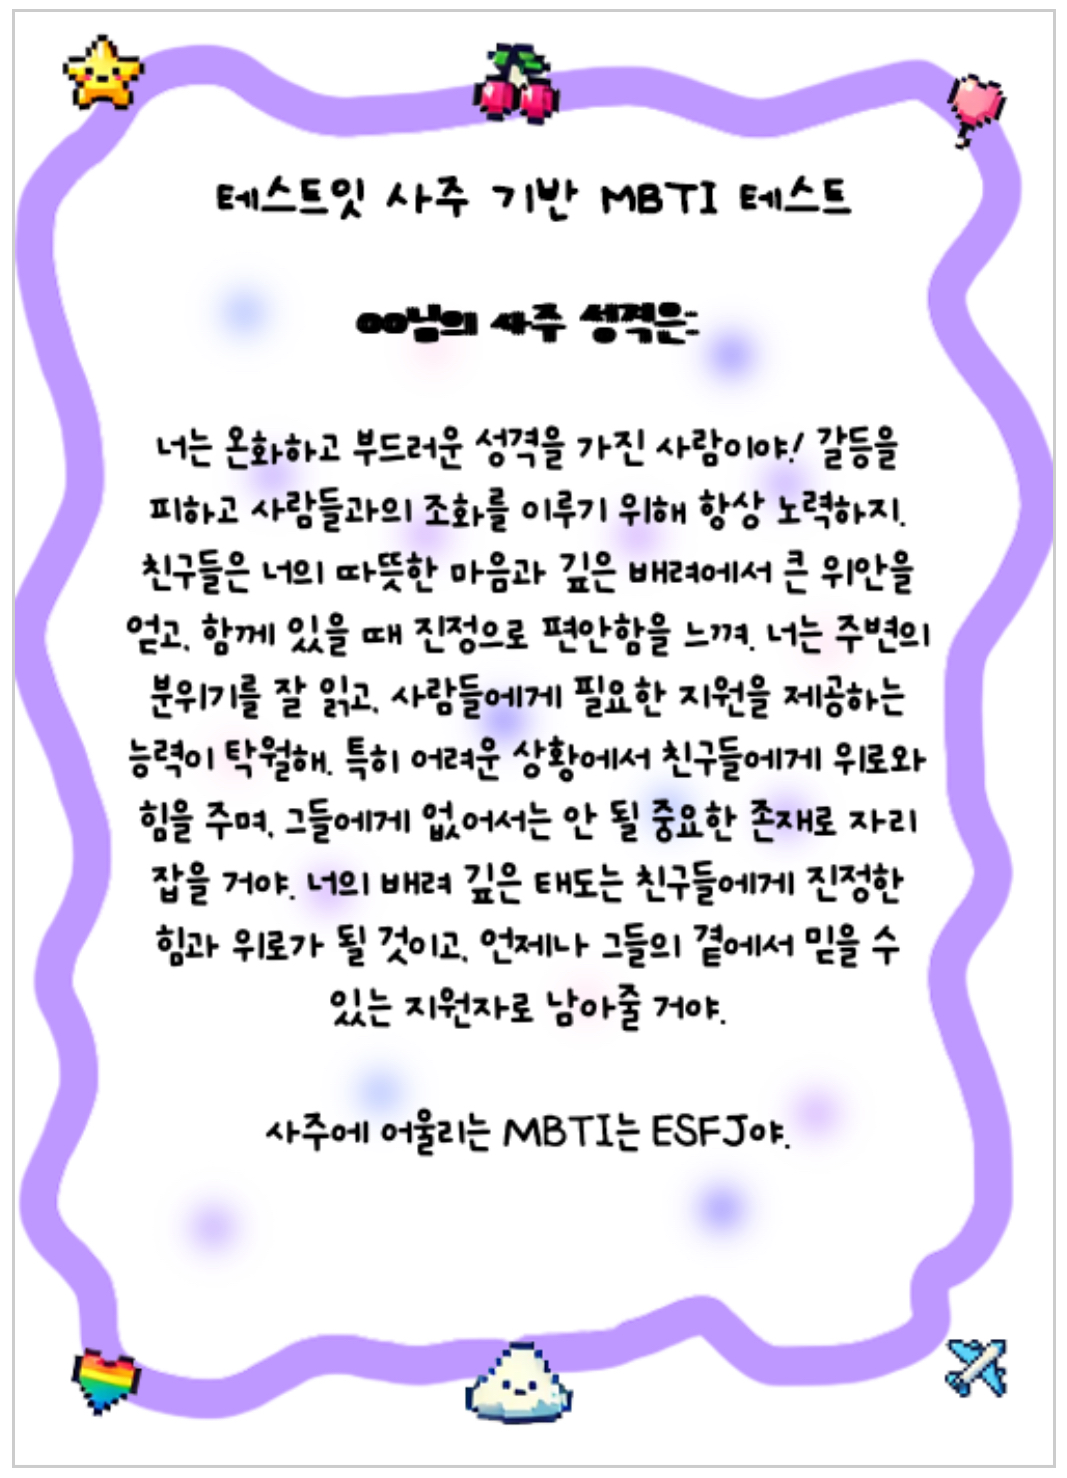 테스트잇 사주 기반 MBTI 테스트
OO님의 사주 성격은:
너는 온화하고 부드러운 성격을 가진 사람이야! 갈등을
피하고 사람들과의 조화를 이루기 위해 항상 노력하지.
친구들은 너의 따뜻한 마음과 깊은 배려에서 큰 위안을
얻고, 함께 있을 때 진정으로 편안함을 느껴. 너는 주변의
분위기를 잘 읽고, 사람들에게 필요한 지원을 제공하는
능력이 탁월해. 특히 어려운 상황에서 친구들에게 위로와
힘을 주며, 그들에게 없어서는 안 될 중요한 존재로 자리
잡을 거야. 너의 배려 깊은 태도는 친구들에게 진정한
힘과 위로가 될 것이고, 언제나 그들의 곁에서 믿을 수
있는 지원자로 남아줄 거야.
사주에 어울리는 MBTI는 ESFJ야.